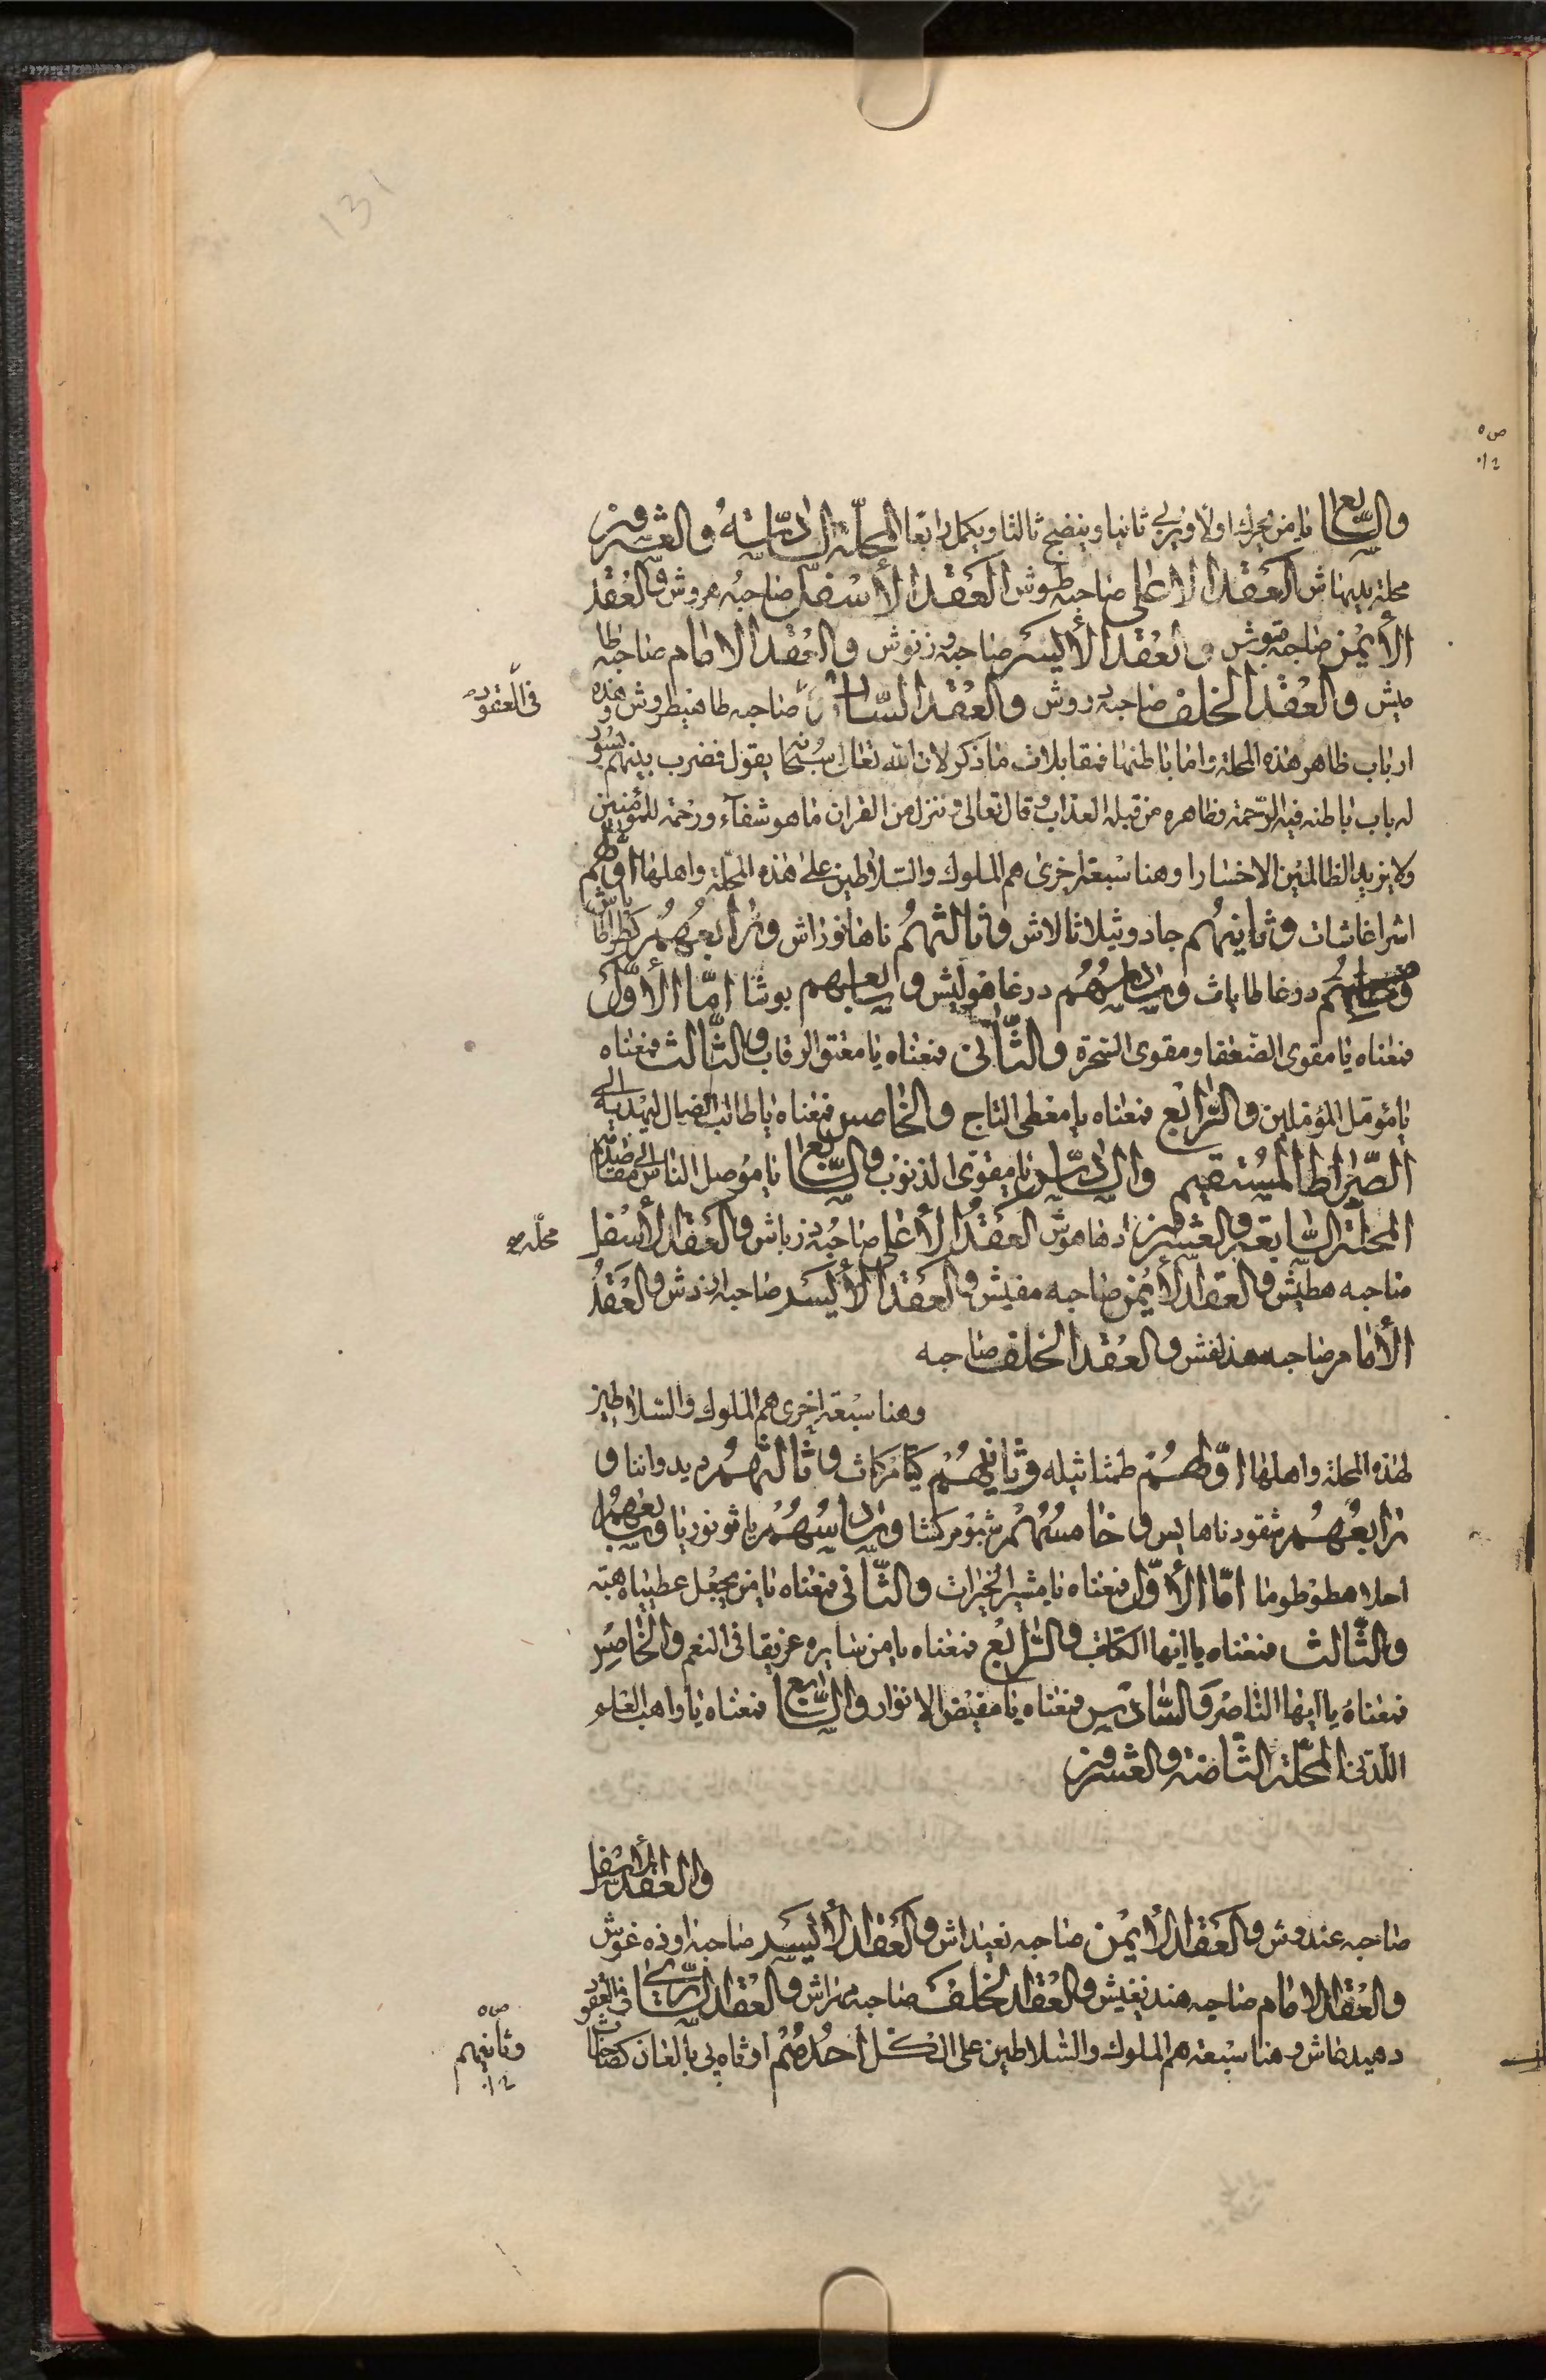 والسابع يا من يحرك اولا ويربي ثانيا وينضج ثالثا ويكمل رابعا المحلة السادسة والعشرون
محلة العقد الاعلى صاحبه طوش العقد الأسفل صاحبه هروش والعقد
الأيمن صاحبه والعقد الأيسر صاحبه وزنوش والعقد الامام صاحبه طا
ميش والعقد الخلف صاحبه دروش والعقد الساري صاحبه طاهيطروش وهذه
في العقود
ارباب ظاهر هذه المحلة واما باطنها فمقابلات ما ذكر لان الله تعالى سبحانه يقول فضرب بينهم بسور
له باب باطنه فيه الرحمة وظاهره من قبله العذاب وقال تعالى وننزل من القران ما هو شفآء ورحمة للمؤمنين
ولا يزيد الظالمين الا خسارا وهنا سبعة اخرى هم الملوك والسلاطين على هذه المحلة واهلها اولهم
اشراغاشات وثانيهم جادوثيلاثالاش وثالثهم ناهانوراش ورابعهم
وخامسهم درغاطاباث وسادسهم درغاموليش وسابعهم بوشا امّا الأوّل
فمعناه يا مقوى الضعفا ومقوى السحرة والثّاني فمعناه يا معتق الرقاب والثّالث فمعناه
يا مؤمل المؤملين والرّابع فمعناه يا معطى التاج والخامس فمعناه يا طالب الضال ليهديه الى
الصّراط المستقيم والسّادس يا مقوى الذنوب والسّابع يا موصل الناس الى مقاصدهم
المحلّة السّابعة والعشرون ادهاهوش العقد الأعلى صاحبه دزباش والعقد الأسفل
محلّه
صاحبه هطيش والعقد الأيمن صاحبه مفيش والعقد الأيسر صاحبه ارندش والعقد
الأمام صاحبه هندلفش والعقد الخلف صاحبه
وهنا سبعة اخرى هم الملوك والسلاطين
لهذه المحلة واهلها اوّلهم طمثا ثيله وثانيهم كيامركاث وثالثهم ديدواننا و
رابعهم شقودناهايس وخامسهم شبومركشا وسادسهم ياثونوريا وسابعهم
احلاهطوطوما امّا الأوّل فمعناه يا مثير الخيرات والثّاني فمعناه يا من يجعل عطيياه هبة
والثّالث فمعناه يا ايها الكاتب والرّابع فمعناه يا من سايره غريقا في النعم والخامس
فمعناه يا ايها الناصر والسّادس فمعناه يا مفيض الانوار والسّابع فمعناه يا واهب العلم
اللّدني المحلّة الثّامنة والعشرون
والعقد الأسفل
صاحبه عندوش والعقد الأيمن صاحبه نعيداش والعقد الأيسر صاحبه اوذه غوش
والعقد الامام صاحبه هندنغيش والعقد الخلف صاحبه مهراش والعقد السّاري في العقود
دهيدطاش وهنا سبعة هم الملوك والسّلاطين على الكل احدهم ارقاه يى بالغان
وثانيهم